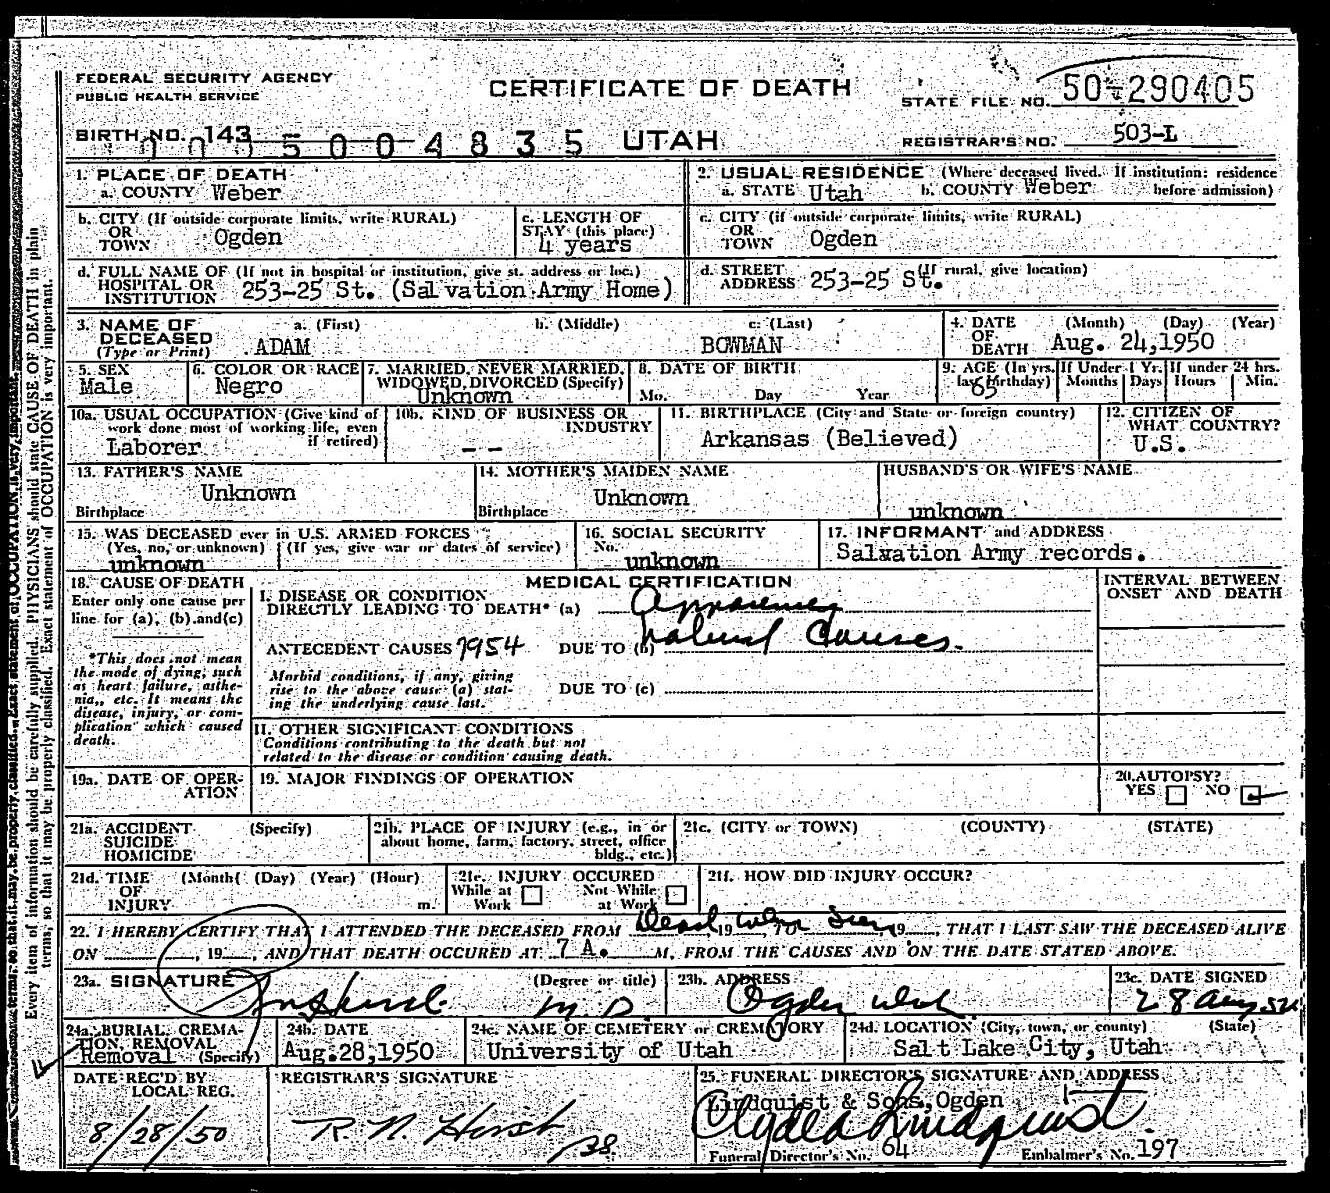 FEDERAL SECURITY AGENCY
PUBLIC HEALTH SERVICE
CERTIFICATE OF DEATH
STATE FILE NO. 50-290405
BIRTH NO. 143
5004835 UTAH
REGISTRAR'S NO. 503-L
1. PLACE OF DEATH
a. COUNTY Weber
2. USUAL RESIDENCE (Where deceased lived. If institution: residence before admission)
a. STATE Utah b. COUNTY Weber
b. CITY (If outside corporate limits, write RURAL)
OR TOWN Ogden
c. LENGTH OF STAY (this place)
4 years
c. CITY (if outside corporate limits, write RURAL)
OR TOWN Ogden
d. FULL NAME OF (If not in hospital or institution, give st. address or loc.)
HOSPITAL OR INSTITUTION 253-25 St. (Salvation Army Home)
d. STREET ADDRESS (If rural, give location)
253-25 St.
3. NAME OF DECEASED (Type or Print)
a. (First) b. (Middle) c. (Last)
ADAM BOWMAN
4. DATE OF DEATH (Month) (Day) (Year)
Aug. 24,1950
5. SEX
Male
6. COLOR OR RACE
Negro
7. MARRIED, NEVER MARRIED, WIDOWED, DIVORCED (Specify)
Unknown
8. DATE OF BIRTH
Mo. Day Year
9. AGE (In yrs. last birthday)
65
If Under 1 Yr. Months Days
If under 24 hrs. Hours Min.
10a. USUAL OCCUPATION (Give kind of work done most of working life, even if retired)
Laborer
10b. KIND OF BUSINESS OR INDUSTRY
--
11. BIRTHPLACE (City and State or foreign country)
Arkansas (Believed)
12. CITIZEN OF WHAT COUNTRY?
U.S.
13. FATHER'S NAME
Unknown
Birthplace
14. MOTHER'S MAIDEN NAME
Unknown
Birthplace
HUSBAND'S OR WIFE'S NAME
unknown
15. WAS DECEASED ever in U.S. ARMED FORCES
(Yes, no, or unknown) (If yes, give war or dates of service)
unknown
16. SOCIAL SECURITY No.
unknown
17. INFORMANT and ADDRESS
Salvation Army records.
18. CAUSE OF DEATH
Enter only one cause per line for (a), (b) and (c)
*This does not mean the mode of dying, such as heart failure, asthenia, etc. It means the disease, injury, or complication which caused death.
MEDICAL CERTIFICATION
INTERVAL BETWEEN ONSET AND DEATH
I. DISEASE OR CONDITION DIRECTLY LEADING TO DEATH* (a) Apparently
ANTECEDENT CAUSES 7954 DUE TO (b) natural causes.
Morbid conditions, if any, giving rise to the above cause (a) stating the underlying cause last.
DUE TO (c)
II. OTHER SIGNIFICANT CONDITIONS
Conditions contributing to the death but not related to the disease or condition causing death.
19a. DATE OF OPERATION
19. MAJOR FINDINGS OF OPERATION
20. AUTOPSY?
YES NO
21a. ACCIDENT SUICIDE HOMICIDE (Specify)
21b. PLACE OF INJURY (e.g., in or about home, farm, factory, street, office bldg., etc.)
21c. (CITY or TOWN) (COUNTY) (STATE)
21d. TIME OF INJURY (Month) (Day) (Year) (Hour) m.
21e. INJURY OCCURED
While at Work Not While at Work
21f. HOW DID INJURY OCCUR?
22. I HEREBY CERTIFY THAT I ATTENDED THE DECEASED FROM Dead 19 when TO Seen 19 , THAT I LAST SAW THE DECEASED ALIVE
ON , 19 , AND THAT DEATH OCCURED AT 7 A. M, FROM THE CAUSES AND ON THE DATE STATED ABOVE.
23a. SIGNATURE (Degree or title)
M.D.
23b. ADDRESS
Ogden Utah
23c. DATE SIGNED
28 Aug 50
24a. BURIAL, CREMATION, REMOVAL (Specify)
Removal
24b. DATE
Aug.28,1950
24c. NAME OF CEMETERY or CREMATORY
University of Utah
24d. LOCATION (City, town, or county) (State)
Salt Lake City, Utah
DATE REC'D BY LOCAL REG.
8/28/50
REGISTRAR'S SIGNATURE
R. N. Hirst
25. FUNERAL DIRECTOR'S SIGNATURE AND ADDRESS
Lindquist & Sons, Ogden
Clyde Lindquist
Funeral Director's No. 64 Embalmer's No. 197
Every item of information should be carefully supplied. PHYSICIANS should state CAUSE OF DEATH in plain
terms, so that it may be properly classified. Exact statement of OCCUPATION is very important.